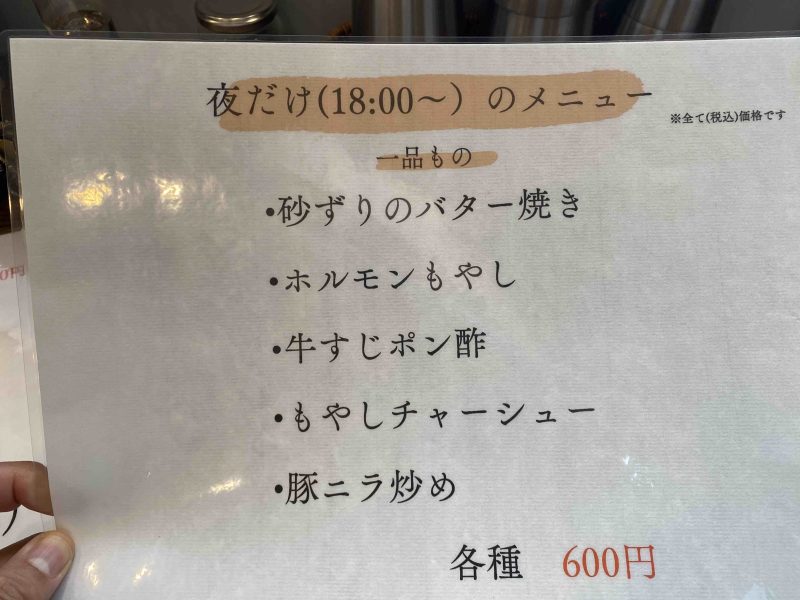 夜だけ(18:00〜）のメニュー
※全て(税込)価格です
一品もの
•砂ずりのバター焼き
•ホルモンもやし
•牛すじポン酢
•もやしチャーシュー
•豚ニラ炒め
各種 600円
0円